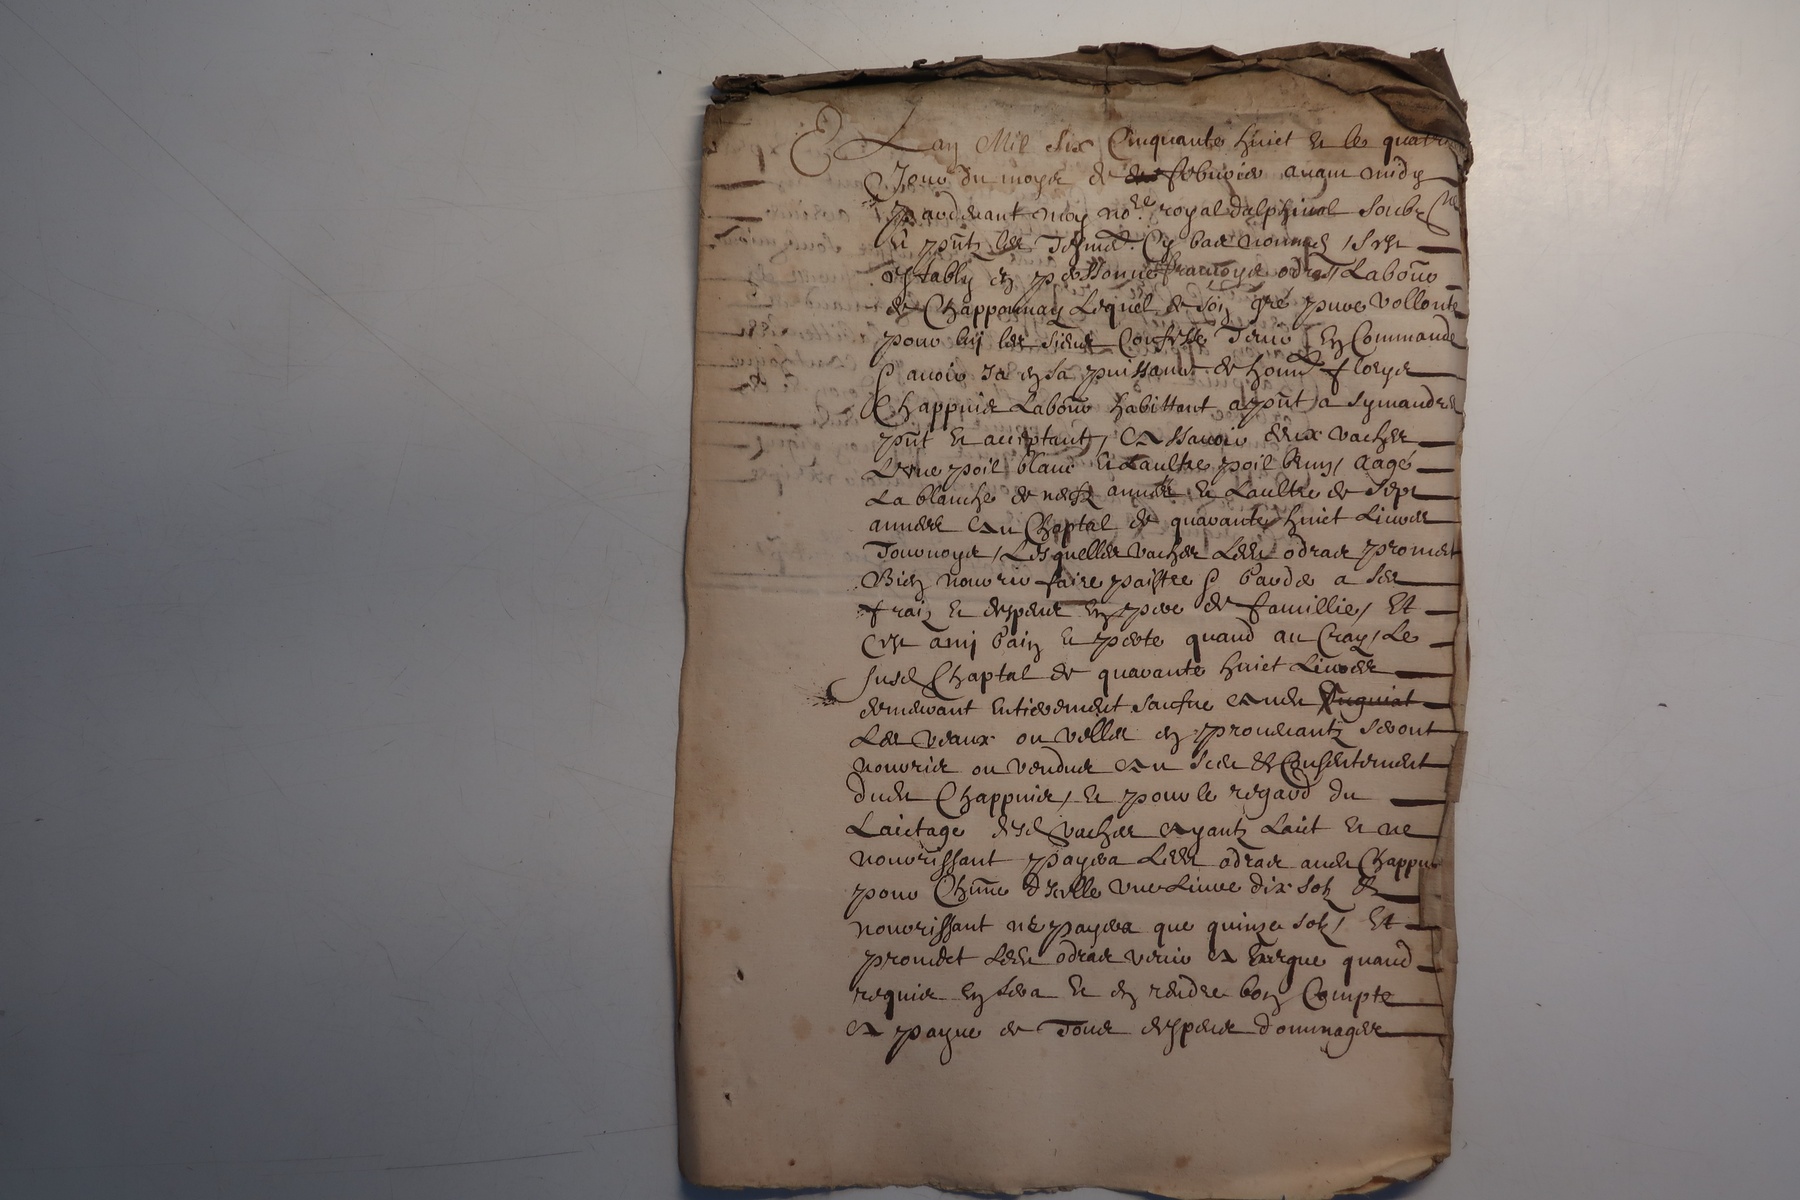 Lan Mil Six Cinquante huict et le quatre
Jour du moys de febvrier avant midy
pardevant moy no.re royal dalphinal soubz
et pñtz les Tesmd. Cy bas nommes / sest
estably en personne francoys odras Labour
de Chapponnay Lequel de son gré pure vollonte
pour luy les siens Confesse Tenir En Commande
& avoir ja en sa puissance de honn. florys
Chappuis Labour habittant a pñt a Symandres
pñt et acceptant / Assavoir deux vaches
Lune poil blanc et Laultre poil brun / aagé
La blanche de neufz annees et Laultre de sept
annees Au Chaptal de quarante huict Livres
Tournoys / Lesquelles vaches Led. odras promet
Bien nourrir faire paistre & garder a ses
fraiz et despens En pere de famillie / Et
Cest a my gain et perte quand au Cray / Le
susd. Chaptal de quarante huict Livres
demeurant entierement saufve aud.
Les veaux ou velles en provenantz seront
nourris ou vendus Au sceu et Consentement
dud. Chappuis / et pour le regard du
Laictage desd. vaches Ayantz Laict et ne
nourrissant payera Led. odras aud. Chappuis
pour Chune dicelle une Livre dix solz &
nourrissant ne payera que quinze solz / Et
promet Led. odras venir A Exregue quand
requis En sera et en rendre bon Compte
A payne de Tous despens dommages